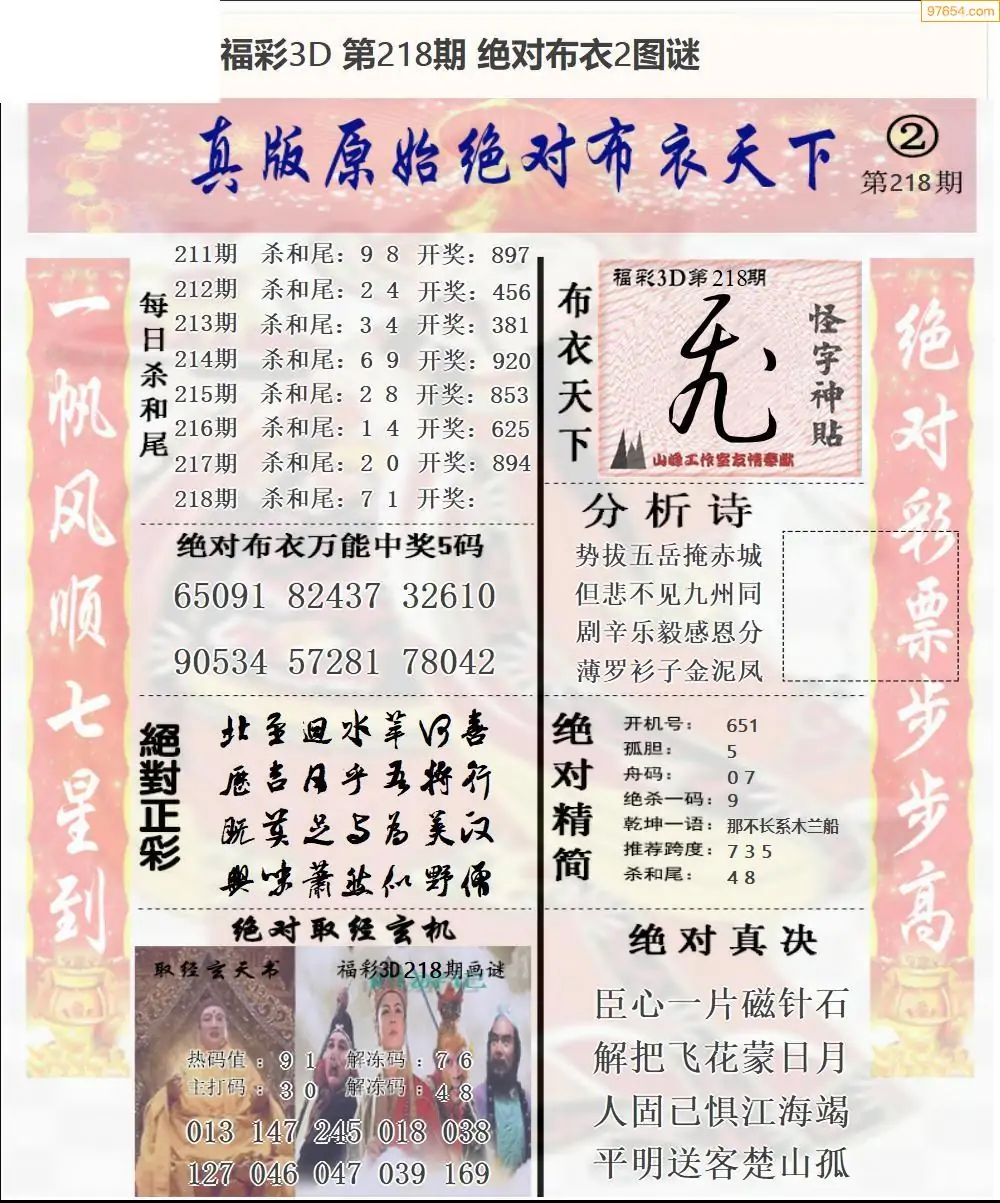 97654.com
福彩3D 第218期 绝对布衣2图谜
真版原始绝对布衣天下
②
第218期
一帆风顺七星到
每日杀和尾
211期 杀和尾：9 8 开奖：897
212期 杀和尾：2 4 开奖：456
213期 杀和尾：3 4 开奖：381
214期 杀和尾：6 9 开奖：920
215期 杀和尾：2 8 开奖：853
216期 杀和尾：1 4 开奖：625
217期 杀和尾：2 0 开奖：894
218期 杀和尾：7 1 开奖：
绝对布衣万能中奖5码
65091 82437 32610
90534 57281 78042
絕對正彩
绝对取经玄机
取经玄天书
福彩3D218期画谜
热码值：9 1 解冻码：7 6
主打码：3 0 解冻码：4 8
013 147 245 018 038
127 046 047 039 169
布衣天下
福彩3D第218期
怪字神貼
山峰工作室友情奉献
分析诗
势拔五岳掩赤城
但悲不见九州同
剧辛乐毅感恩分
薄罗衫子金泥凤
绝对精简
开机号： 651
孤胆： 5
舟码： 0 7
绝杀一码：9
乾坤一语：那不长系木兰船
推荐跨度：7 3 5
杀和尾： 4 8
绝对真决
臣心一片磁针石
解把飞花蒙日月
人固已惧江海竭
平明送客楚山孤
绝对彩票步步高